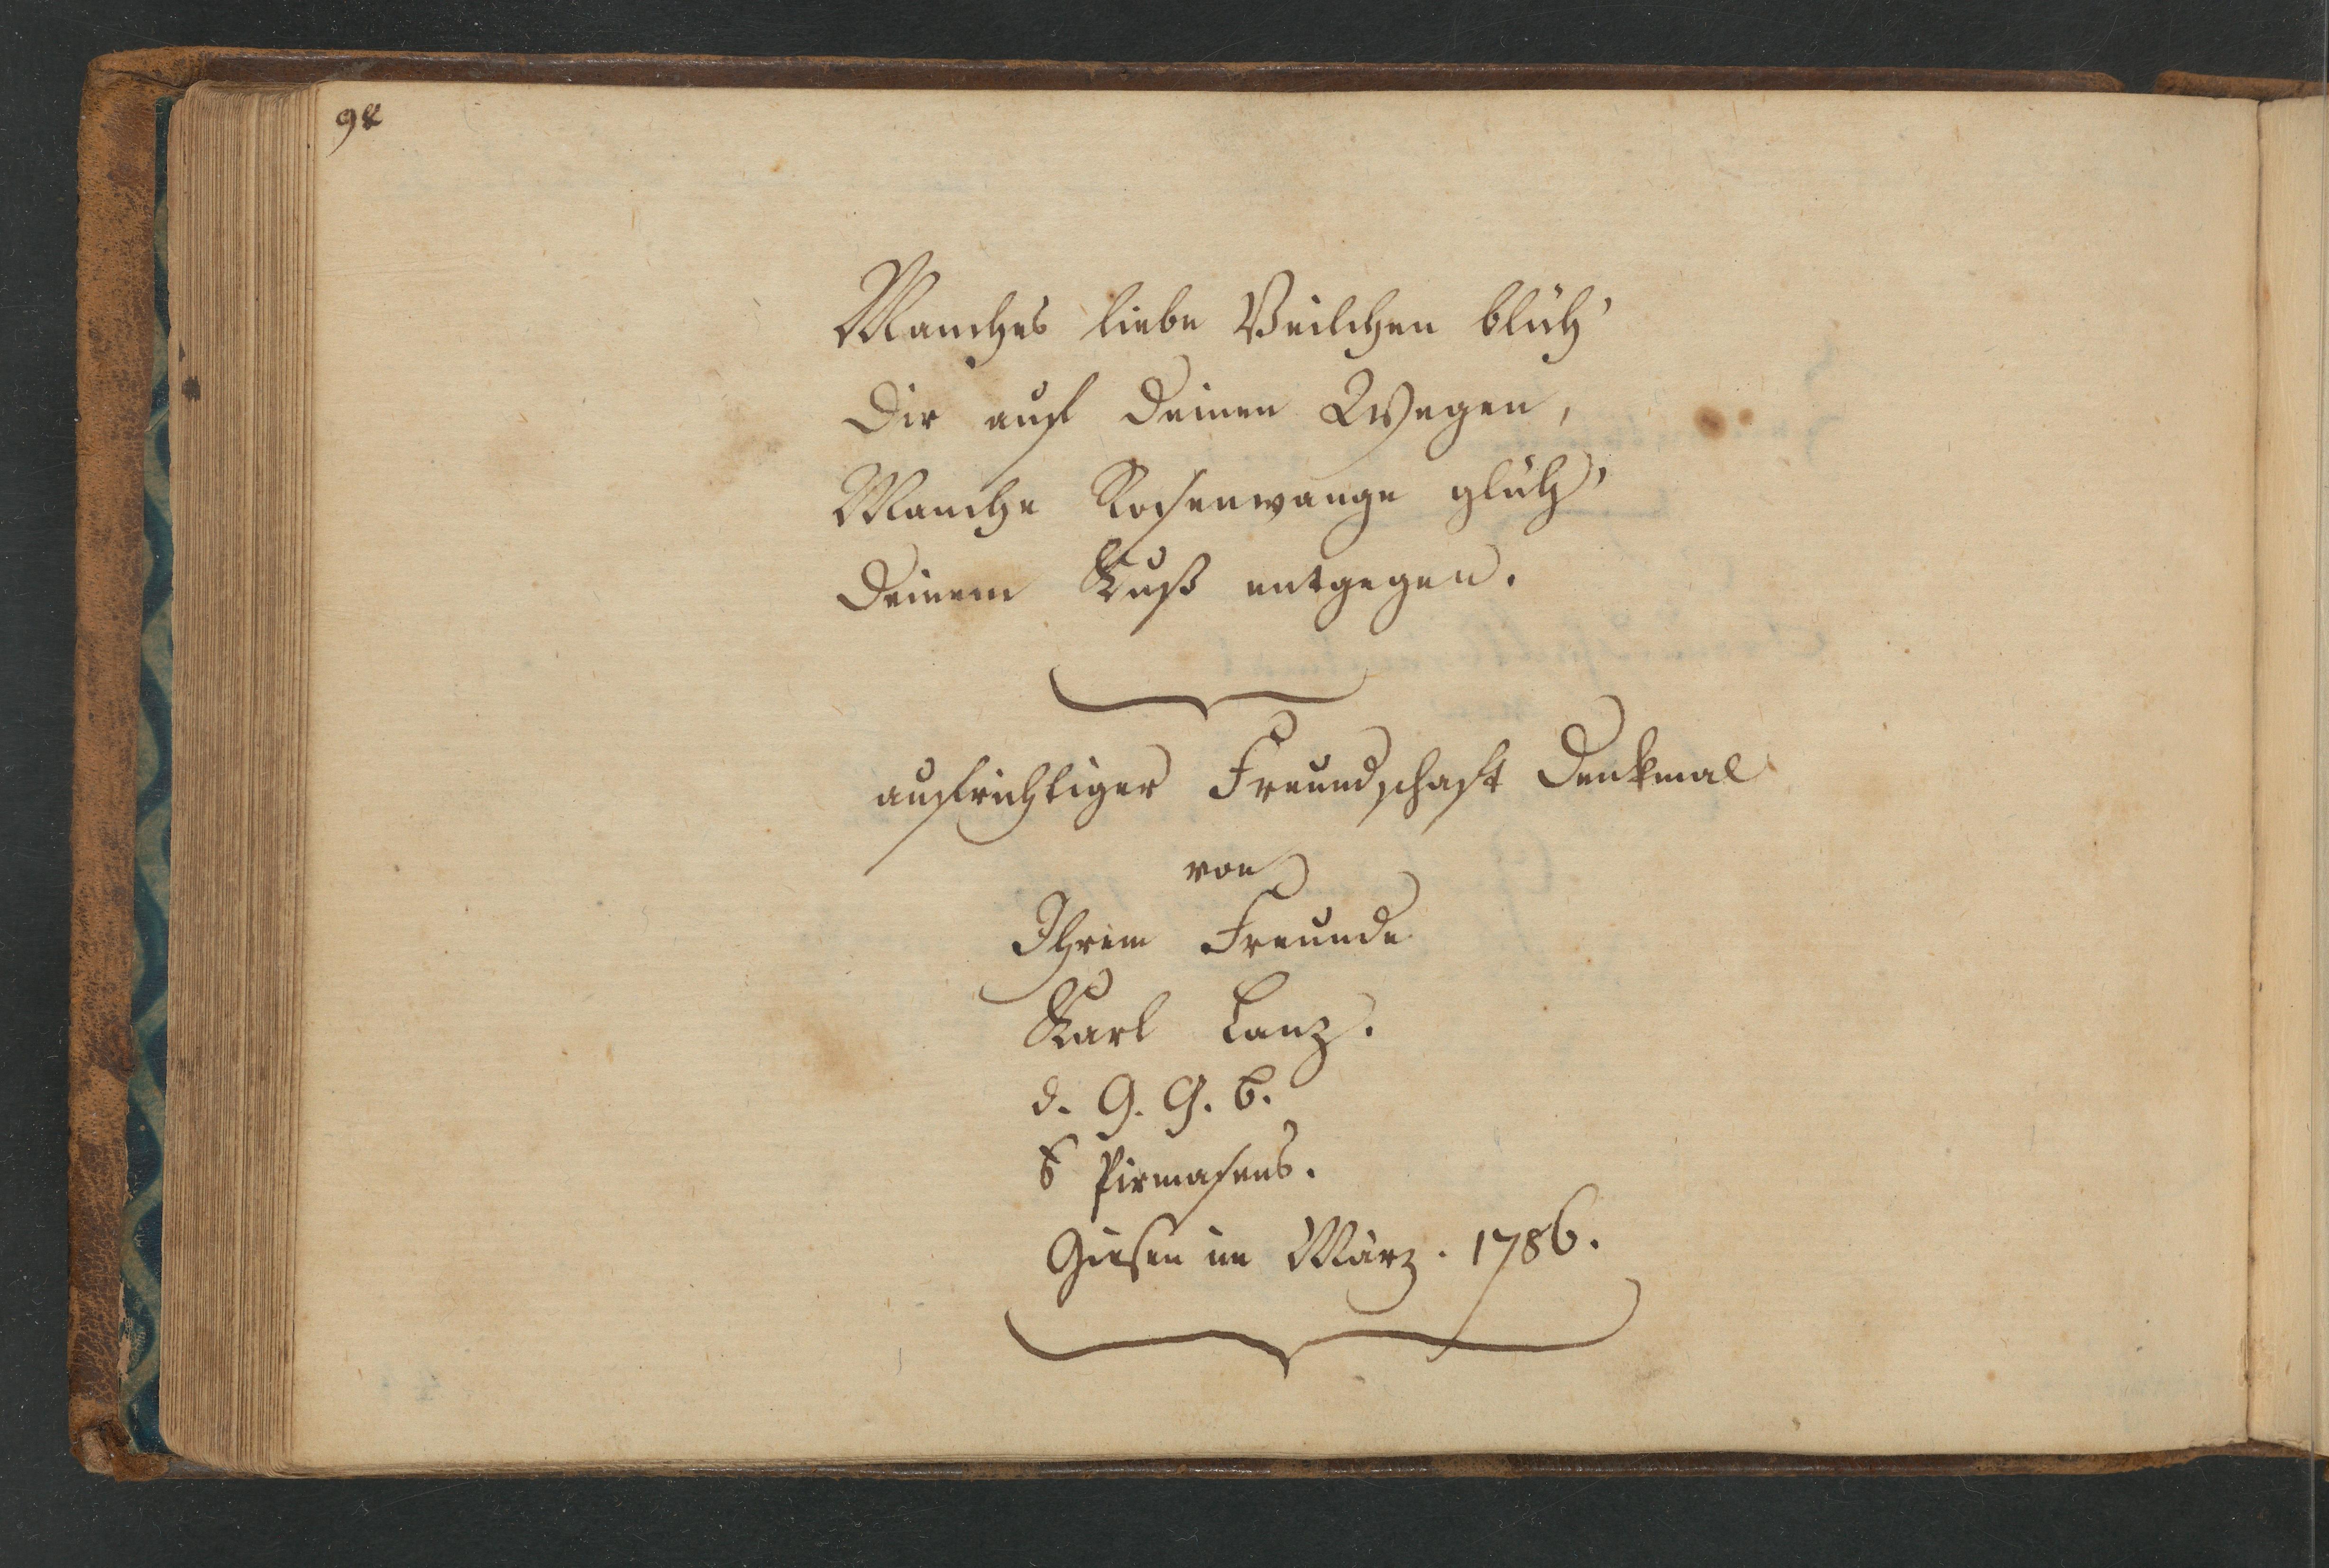 Manches liebe Veilchen blüh'
Dir auf Deinen Wegen,
Manche Rosenwange glüh'
Deinem Kuß entgegen.
aufrichtiger Freundschaft Denkmal
von
Ihrem Freunde
Karl Lanz.
d. G. G. b.
Pirmasens.
Giesen im März. 1786.